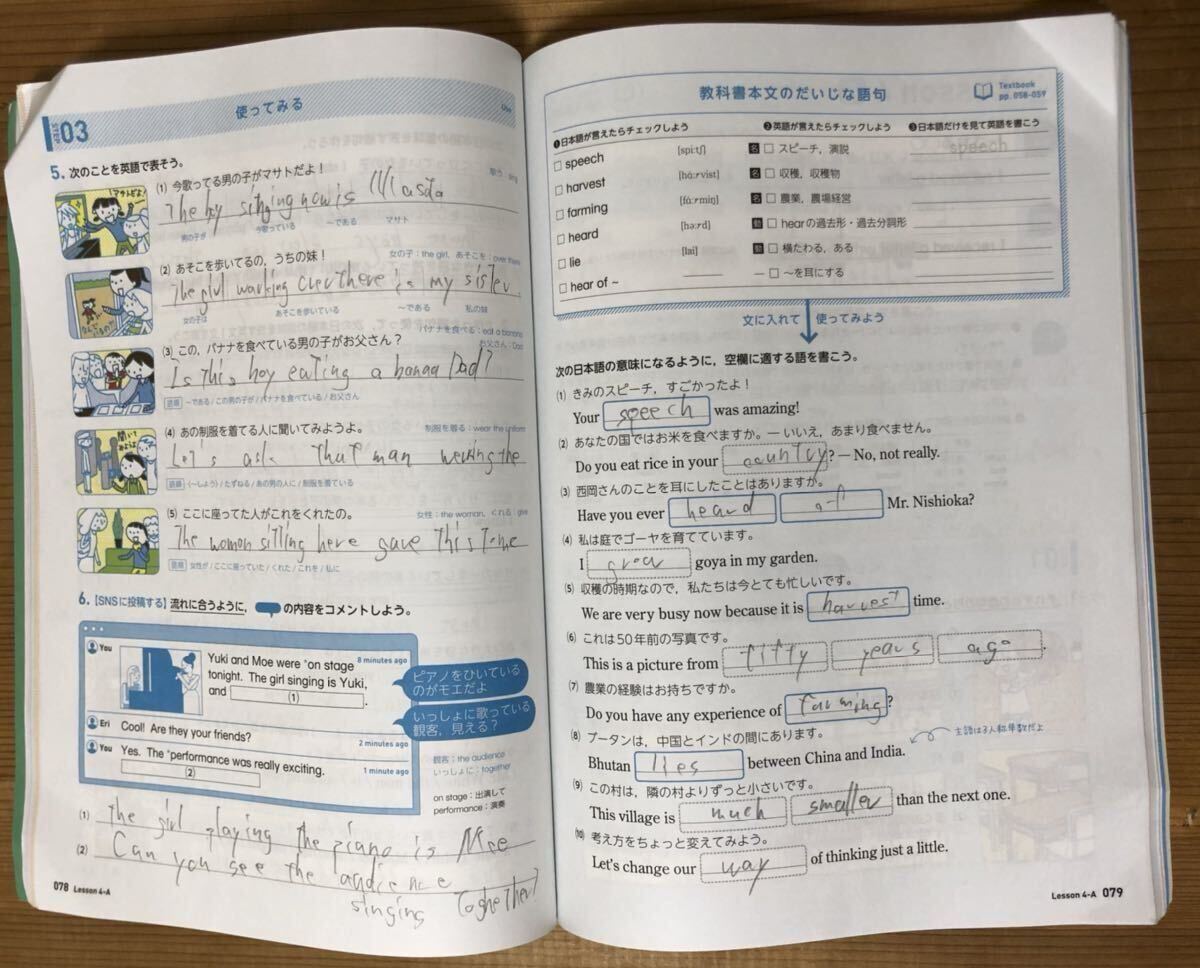 STEP 03 使ってみる Use
5. 次のことを英語で表そう。
マサトだよ!
(1) 今歌ってる男の子がマサトだよ!
The boy singing now is Masato
男の子が 今歌っている ～である マサト
(2) あそこを歩いてるの, うちの妹!
女の子：the girl, あそこを：over there
The girl warking over there is my sister.
女の子は あそこを歩いている ～である 私の妹
バナナを食べる：eat a banana
お父さん：Dad
(3) この, バナナを食べている男の子がお父さん?
Is this boy eating a banaa Dad?
語順 ～である / この男の子が / バナナを食べている / お父さん
聞いてみよう
(4) あの制服を着てる人に聞いてみようよ。
制服を着る：wear the uniform
Let's ask that man werking the
語順 〈～しよう〉 / たずねる / あの男の人に / 制服を着ている
(5) ここに座ってた人がこれをくれたの。
女性：the woman, くれる：give
The woman sitting here gave this to me
語順 女性が / ここに座っていた / くれた / これを / 私に
6. 【SNSに投稿する】流れに合うように, の内容をコメントしよう。
You
8 minutes ago
Yuki and Moe were *on stage
tonight. The girl singing is Yuki,
and (1) .
ピアノをひいている
のがモエだよ
Eri Cool! Are they your friends?
2 minutes ago
いっしょに歌っている
観客, 見える?
You Yes. The *performance was really exciting.
(2)
1 minute ago
観客：the audience
いっしょに：together
on stage：出演して
performance：演奏
(1) the girl playing the piano is Moe
(2) Can you see the audience
singing toghether?
078 Lesson 4-A
教科書本文のだいじな語句
Textbook
pp. 058-059
❶日本語が言えたらチェックしよう ❷英語が言えたらチェックしよう ❸日本語だけを見て英語を書こう
speech [spiːtʃ] 名 スピーチ, 演説 speech
harvest [hɑ́ːrvist] 名 収穫, 収穫物
farming [fɑ́ːrmiŋ] 名 農業, 農場経営
heard [həːrd] 動 hearの過去形・過去分詞形
lie [lai] 動 横たわる, ある
hear of ～ — ～を耳にする
文に入れて 使ってみよう
次の日本語の意味になるように, 空欄に適する語を書こう。
(1) きみのスピーチ, すごかったよ!
Your speech was amazing!
(2) あなたの国ではお米を食べますか。— いいえ, あまり食べません。
Do you eat rice in your country? — No, not really.
(3) 西岡さんのことを耳にしたことはありますか。
Have you ever heard of Mr. Nishioka?
(4) 私は庭でゴーヤを育てています。
I grow goya in my garden.
(5) 収穫の時期なので, 私たちは今とても忙しいです。
We are very busy now because it is harvest time.
(6) これは50年前の写真です。
This is a picture from fifty years ago.
(7) 農業の経験はお持ちですか。
Do you have any experience of farming?
(8) ブータンは, 中国とインドの間にあります。
主語は3人称単数だよ
Bhutan lies between China and India.
(9) この村は, 隣の村よりずっと小さいです。
This village is much smaller than the next one.
(10) 考え方をちょっと変えてみよう。
Let's change our way of thinking just a little.
Lesson 4-A 079